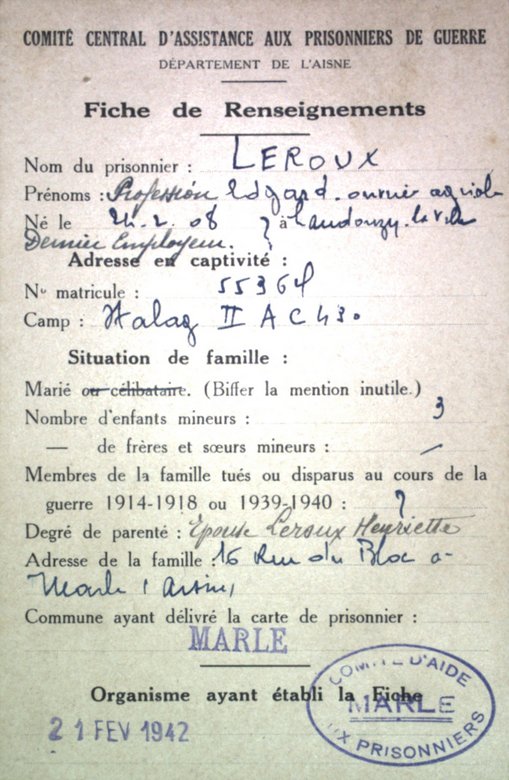 COMITÉ CENTRAL D'ASSISTANCE AUX PRISONNIERS DE GUERRE
DÉPARTEMENT DE L'AISNE
Fiche de Renseignements
Nom du prisonnier : LEROUX
Prénoms : Profession Edgard. ouvrier agricole
Né le 24.2.08 à Landouzy-la-Ville
Dernier Employeur. ?
Adresse en captivité :
N° matricule : 55364
Camp : Stalag II A C 430
Situation de famille :
Marié ou célibataire. (Biffer la mention inutile.)
Nombre d'enfants mineurs : 3
— de frères et sœurs mineurs : —
Membres de la famille tués ou disparus au cours de la
guerre 1914-1918 ou 1939-1940 : ?
Degré de parenté : Epouse Leroux Henriette
Adresse de la famille : 16 Rue du Bloc a-
Marle (Aisne)
Commune ayant délivré la carte de prisonnier :
MARLE
Organisme ayant établi la Fiche
COMITÉ D'AIDE
MARLE
UX PRISONNIERS
21 FEV 1942